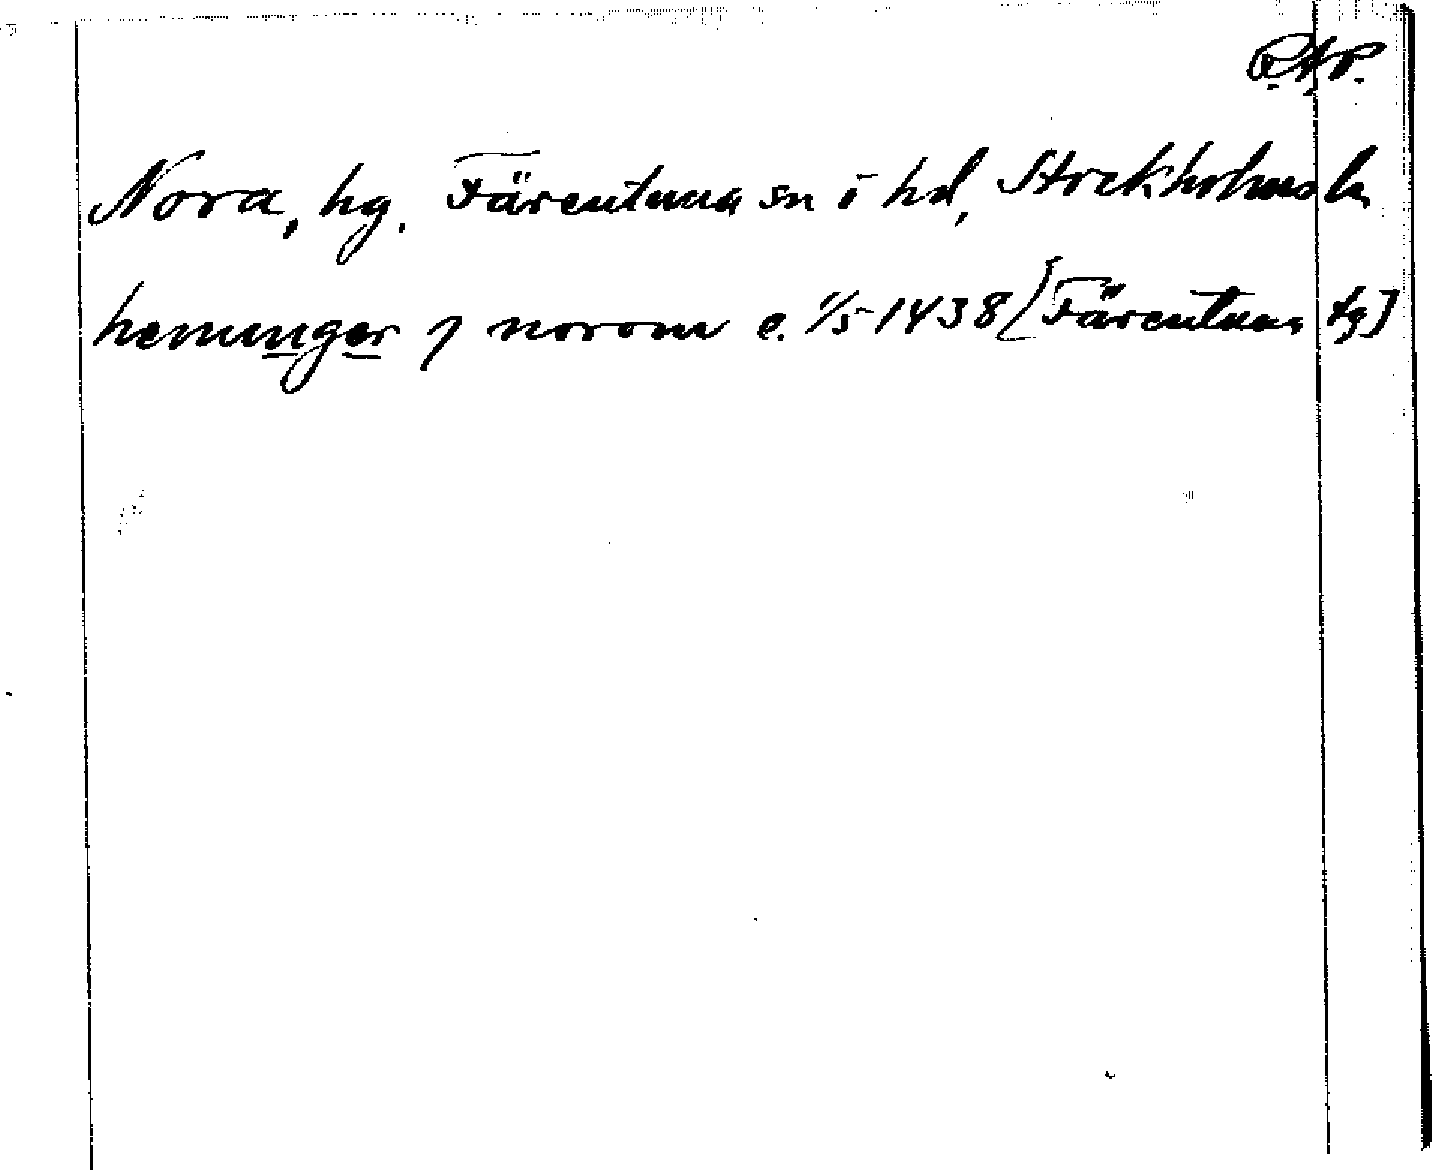 R.A.P.
Nora, hg. Färentuna sn i hd, Stockholms l.
hemminger j norom e. 1/5 1438 [Färentuna tg]